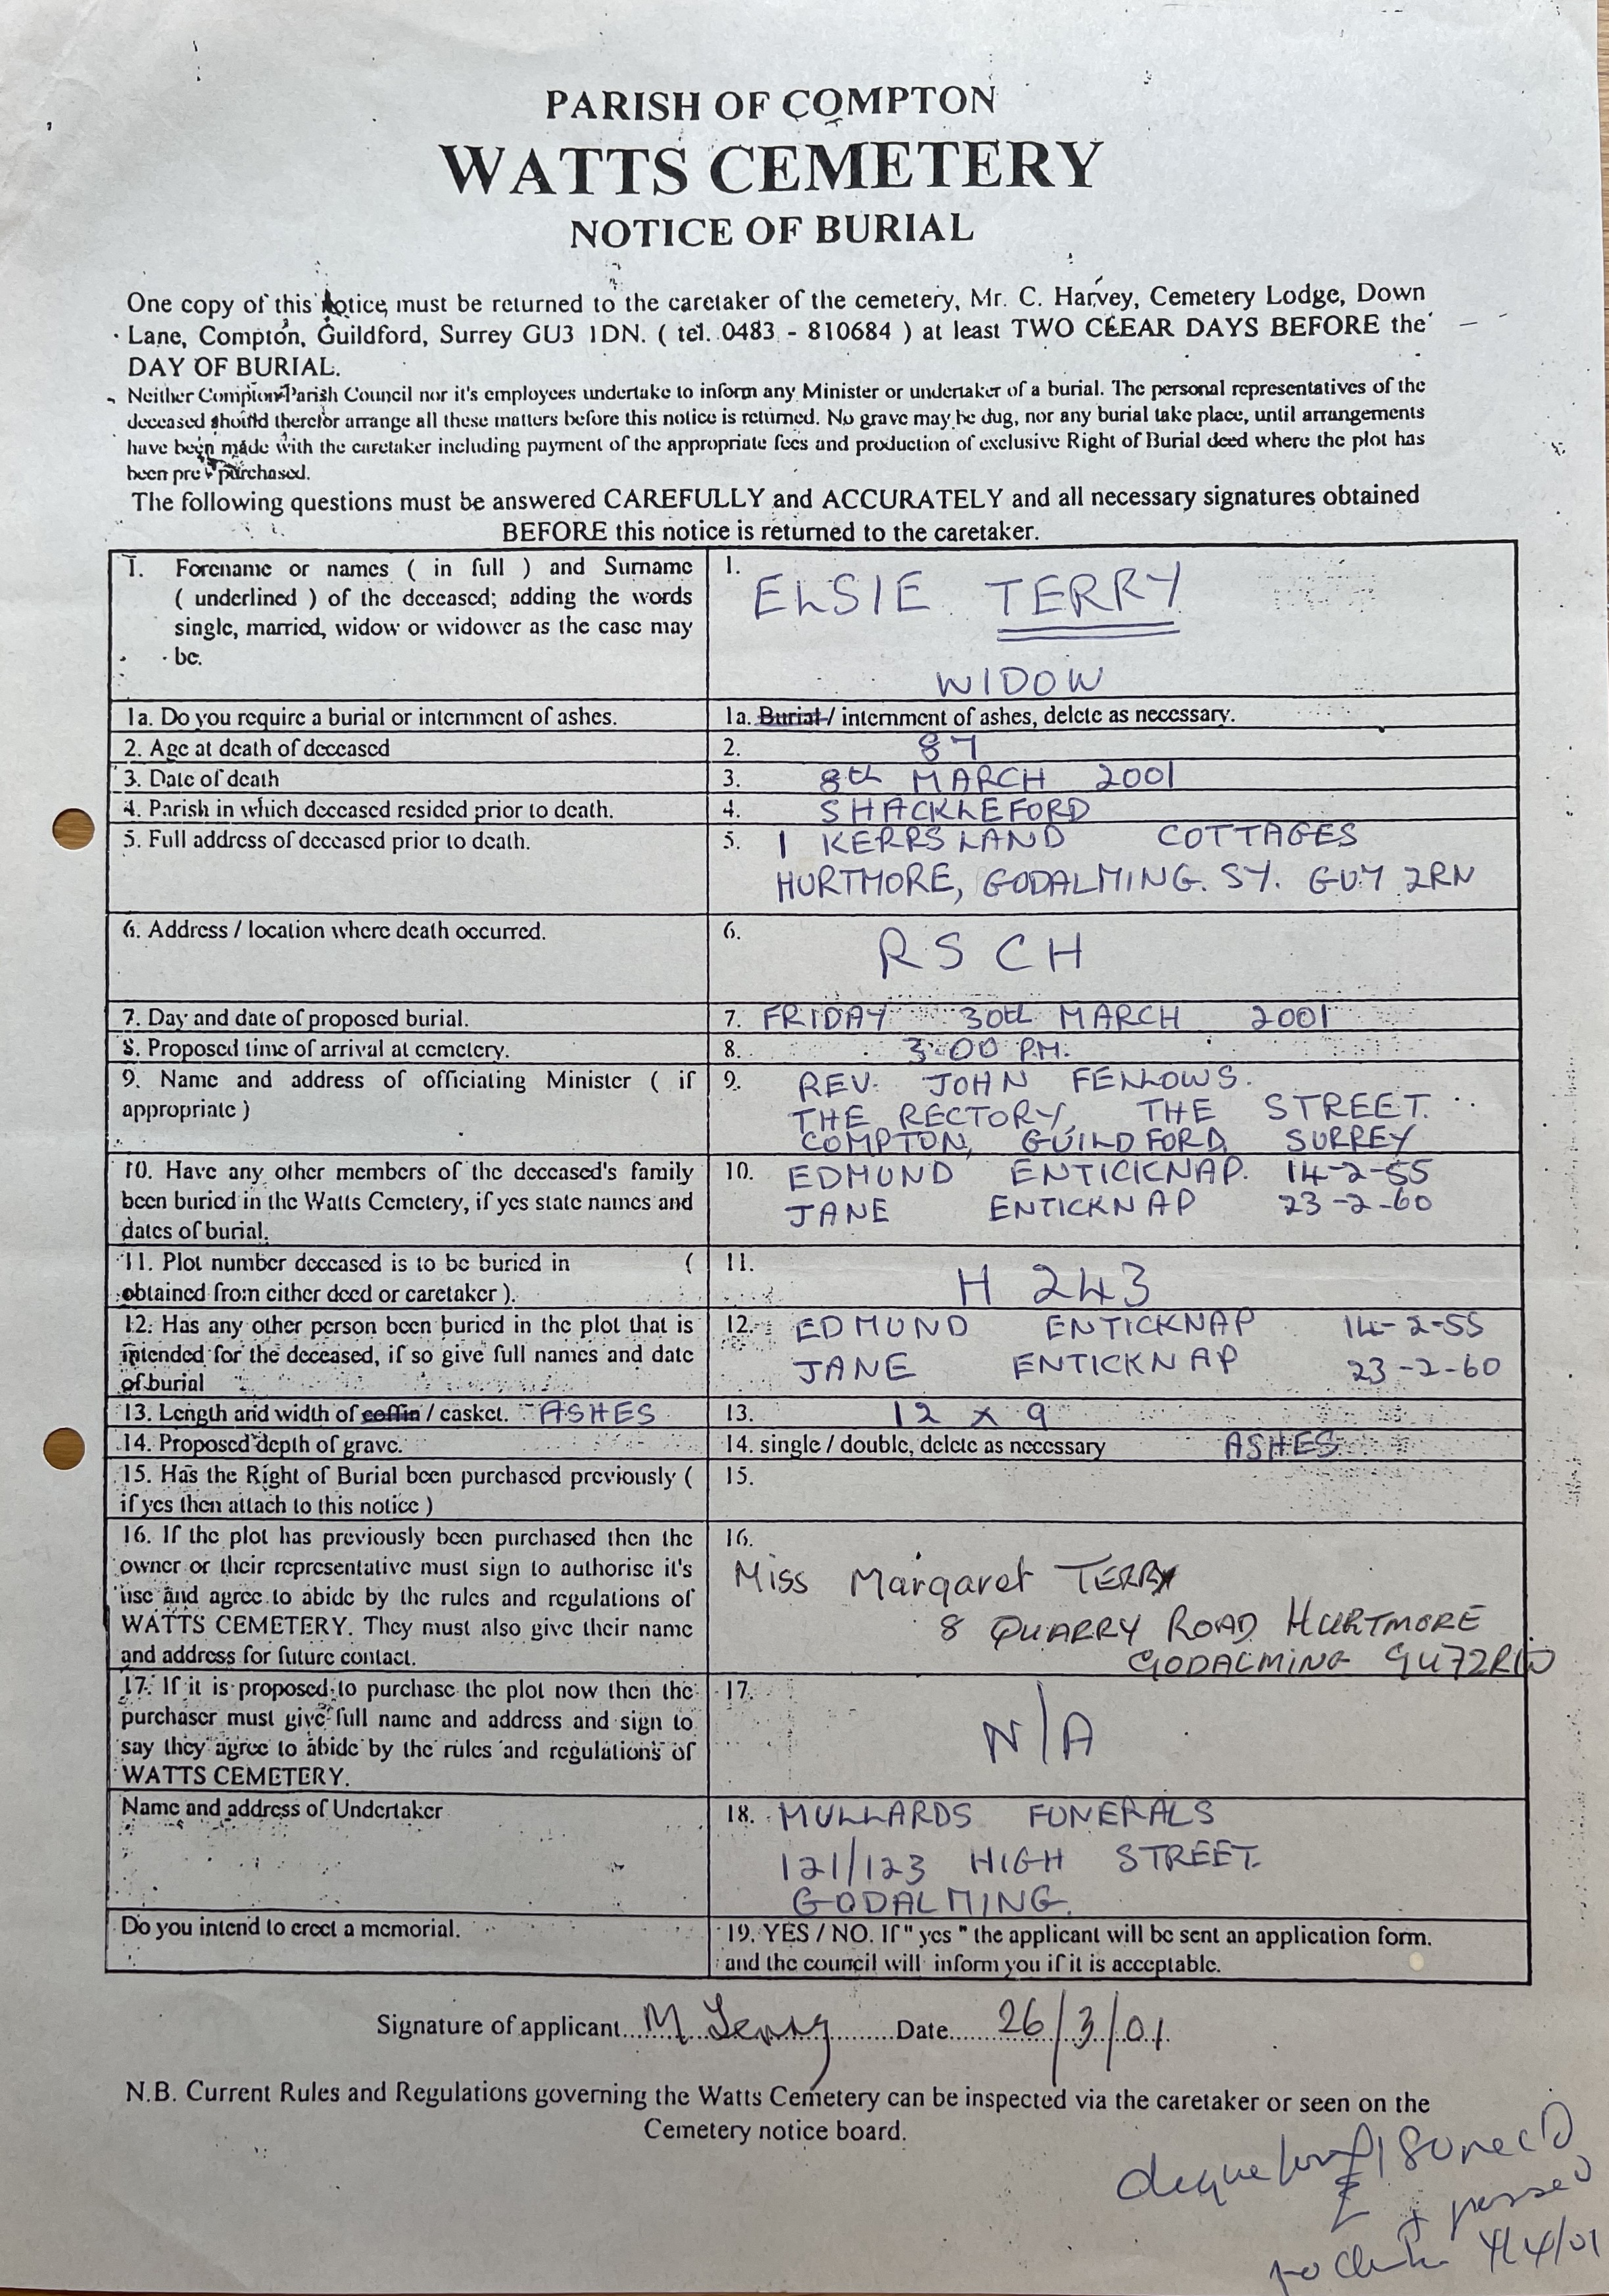 PARISH OF COMPTON
WATTS CEMETERY
NOTICE OF BURIAL
One copy of this notice, must be returned to the caretaker of the cemetery, Mr. C. Harvey, Cemetery Lodge, Down
Lane, Compton, Guildford, Surrey GU3 1DN. ( tel. 0483 - 810684 ) at least TWO CLEAR DAYS BEFORE the
DAY OF BURIAL.
Neither Compton Parish Council nor it's employees undertake to inform any Minister or undertaker of a burial. The personal representatives of the
deceased should therefor arrange all these matters before this notice is returned. No grave may be dug, nor any burial take place, until arrangements
have been made with the caretaker including payment of the appropriate fees and production of exclusive Right of Burial deed where the plot has
been pre - purchased.
The following questions must be answered CAREFULLY and ACCURATELY and all necessary signatures obtained
BEFORE this notice is returned to the caretaker.
1. Forename or names ( in full ) and Surname
( underlined ) of the deceased; adding the words
single, married, widow or widower as the case may
be.
1.
ELSIE TERRY
WIDOW
1a. Do you require a burial or internment of ashes.
1a. Burial / internment of ashes, delete as necessary.
2. Age at death of deceased
2. 87
3. Date of death
3. 8th MARCH 2001
4. Parish in which deceased resided prior to death.
4. SHACKLEFORD
5. Full address of deceased prior to death.
5. 1 KERRSLAND COTTAGES
HURTMORE, GODALMING. SY. GU7 2RN
6. Address / location where death occurred.
6. RSCH
7. Day and date of proposed burial.
7. FRIDAY 30th MARCH 2001
8. Proposed time of arrival at cemetery.
8. 3.00 P.M.
9. Name and address of officiating Minister ( if
appropriate )
9. REV. JOHN FELLOWS.
THE RECTORY, THE STREET.
COMPTON, GUILDFORD, SURREY
10. Have any other members of the deceased's family
been buried in the Watts Cemetery, if yes state names and
dates of burial.
10. EDMUND ENTICKNAP. 14-2-55
JANE ENTICKNAP 23-2-60
11. Plot number deceased is to be buried in (
obtained from either deed or caretaker ).
11. H 243
12. Has any other person been buried in the plot that is
intended for the deceased, if so give full names and date
of burial
12. EDMUND ENTICKNAP 14-2-55
JANE ENTICKNAP 23-2-60
13. Length and width of coffin / casket. ASHES
13. 12 x 9
14. Proposed depth of grave.
14. single / double, delete as necessary ASHES
15. Has the Right of Burial been purchased previously (
if yes then attach to this notice )
15.
16. If the plot has previously been purchased then the
owner or their representative must sign to authorise it's
use and agree to abide by the rules and regulations of
WATTS CEMETERY. They must also give their name
and address for future contact.
16.
Miss Margaret TERRY
8 QUARRY ROAD HURTMORE
GODALMING GU7 2RW
17. If it is proposed to purchase the plot now then the
purchaser must give full name and address and sign to
say they agree to abide by the rules and regulations of
WATTS CEMETERY.
17.
N/A
Name and address of Undertaker
18. MULLARDS FUNERALS
121/123 HIGH STREET.
GODALMING.
Do you intend to erect a memorial.
19. YES / NO. If " yes " the applicant will be sent an application form.
and the council will inform you if it is acceptable.
Signature of applicant M Terry Date 26/3/01
N.B. Current Rules and Regulations governing the Watts Cemetery can be inspected via the caretaker or seen on the
Cemetery notice board.
cheque for £180 rec'd
+ passed
to Clerk 4/4/01